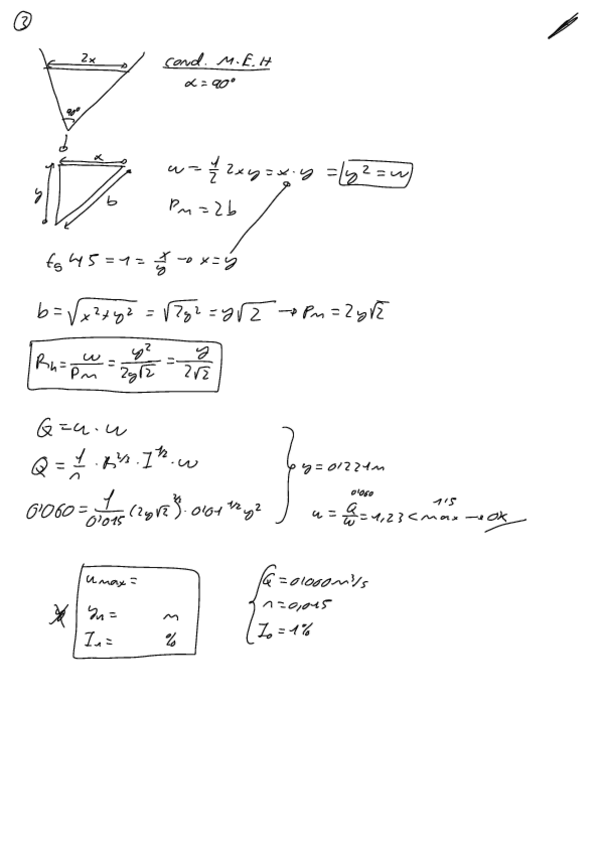 ③
2x
cond. M.E.H
α = 90°
90°
x
y
b
w = 1/2 2xy = x·y = y² = w
Pm = 2b
tg 45 = 1 = x/y → x = y
b = √(x²+y²) = √(2y²) = y√2 → Pm = 2y√2
Rh = w/Pm = y²/(2y√2) = y/(2√2)
Q = u · w
Q = 1/n · R^2/3 · I^1/2 · w
y = 0'221m
0'060 = 1/0'015 (2y√2)^2/3 · 0'01^1/2 y²
0'060
1'5
u = Q/w = 1,23 < max → OK
umax =
yn = m
I1 = %
Q = 0'060m³/s
n = 0,015
I0 = 1%